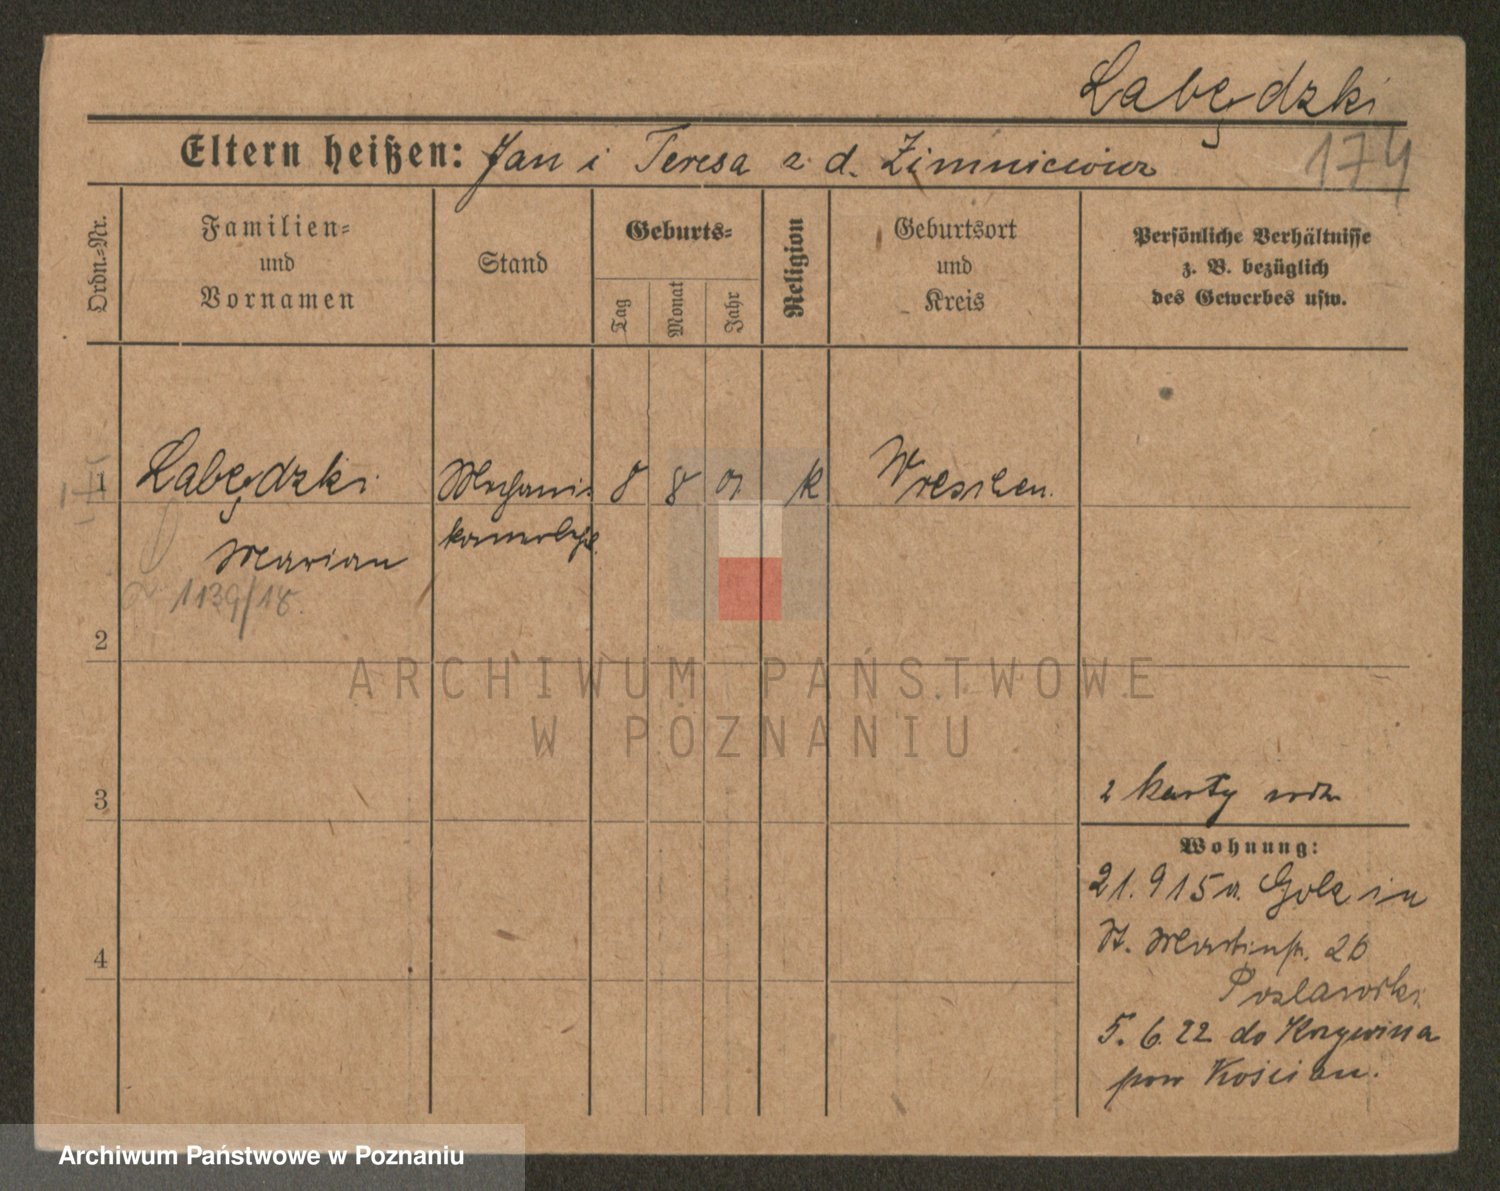 Łabędzki
Eltern heißen: Jan i Teresa z d. Zimniewicz
174
Ordn.-Nr.
Familien-
und
Vornamen
Stand
Geburts-
Tag
Monat
Jahr
Religion
Geburtsort
und
Kreis
Persönliche Verhältnisse
z. B. bezüglich
des Gewerbes usw.
1
Łabędzki
Marian
1139/18.
8 8 01 k
Wreschen.
2
3
4
2 karty
Wohnung:
21.9 15 a. Golz in
St. Martinstr. 26
5. 6. 22 do Krzywina
pow Kościan.
ARCHIWUM PAŃSTWOWE
W POZNANIU
Archiwum Państwowe w Poznaniu